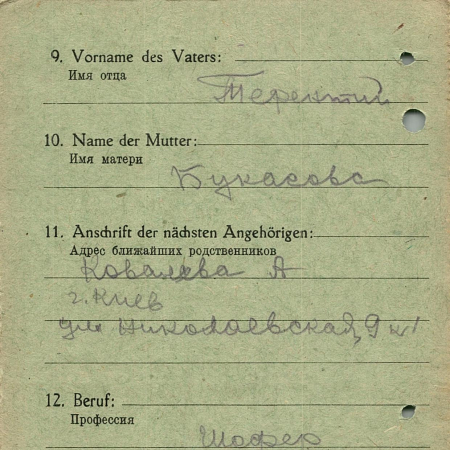 9. Vorname des Vaters:
Имя отца
Терентий
10. Name der Mutter:
Имя матери
Букасова
11. Anschrift der nächsten Angehörigen:
Адрес ближайших родственников
Ковалева А
г. Киев
ул Николаевская, 9 к 1
12. Beruf:
Профессия
Шофер